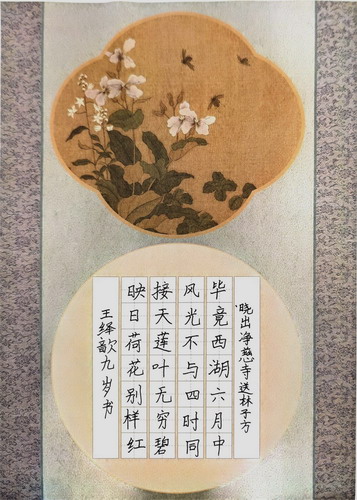 晓出净慈寺送林子方
毕竟西湖六月中
风光不与四时同
接天莲叶无穷碧
映日荷花别样红
王绎歆九岁书